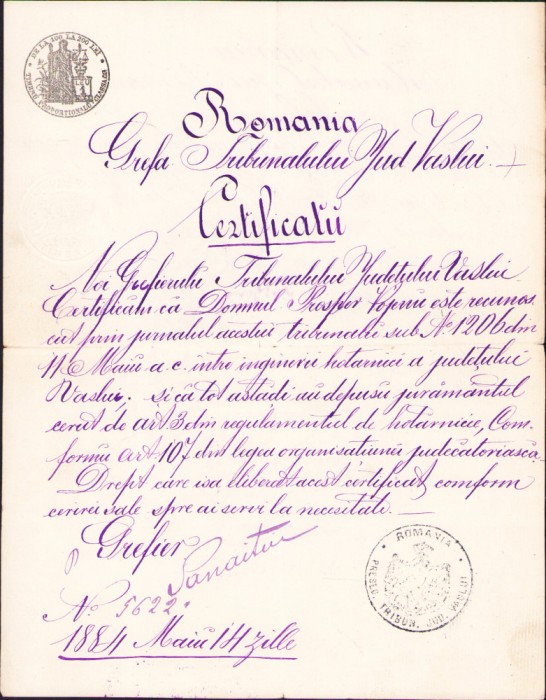 DE LA 500 LA 700 LEI
TIMBRU PROPORTIONAL
Romania
Grefa Tribunalului Jud Vaslui
Certificatŭ
Noi Grefierulu Tribunalului Judeţului Vaslui
Certificăm că Domnul Prosper este recunos
cut prin jurnalul acestui tribunalŭ sub No 1206 din
11 Maiŭ a.c. intre inginerii hotarnici a judeţului
Vaslui, si că tot astadi aŭ depusu jurămăntul
cerut de art 3 din regulamentul de hotărnicie, Com-
formŭ art 107 din legea organisatiunei judecătoriască
Drept care isa eliberat acest certificat comform
cererei sale spre ai servi la necesitate.
p Grefier
No 5622.
1884 Maiŭ 14 zille
ROMANIA
PRESED. TRIBUN. JUD. VASLUI